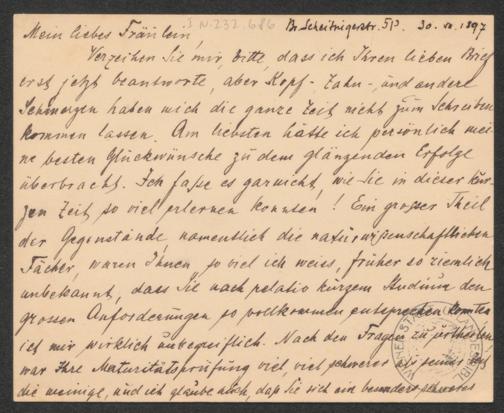 I.N. 232.686
Br. Scheitnigerstr. 51. 30. 1897
Mein liebes Fräulein!
Verzeihen Sie mir, bitte, dass ich Ihren lieben Brief
erst jetzt beantworte, aber Kopf- Zahn-, und andere
Schmerzen haben mich die ganze Zeit nicht zum Schreiben
kommen lassen. Am liebsten hätte ich persönlich mei-
ne besten Glückwünsche zu dem glänzenden Erfolge
überbracht. Ich faße es garnicht, wie Sie in dieser kur-
zen Zeit so viel erlernen konnten! Ein grosser Theil
der Gegenstände, namentlich die naturwissenschaftlichen
Fächer, waren Ihnen, so viel ich weiss, früher so ziemlich
unbekannt, dass Sie nach relativ kurzem Studium den
grossen Anforderungen so vollkommen entsprechen konnten
ist mir wirklich unbegreiflich. Nach den Fragen zu urtheilen,
war Ihre Maturitätsprüfung viel, viel schwerer als
die meinige, und ich glaube auch, daß Sie sich ein besonders schweres